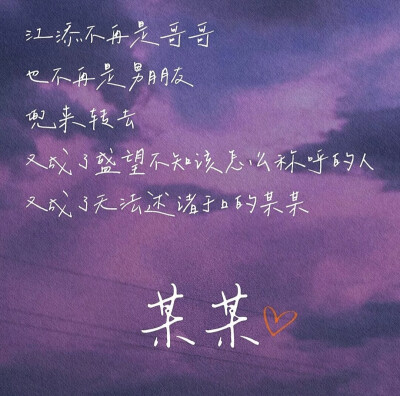 江添不再是哥哥
也不再是男朋友
兜来转去
又成了盛望不知该怎么称呼的人
又成了无法述诸于口的某某
某某